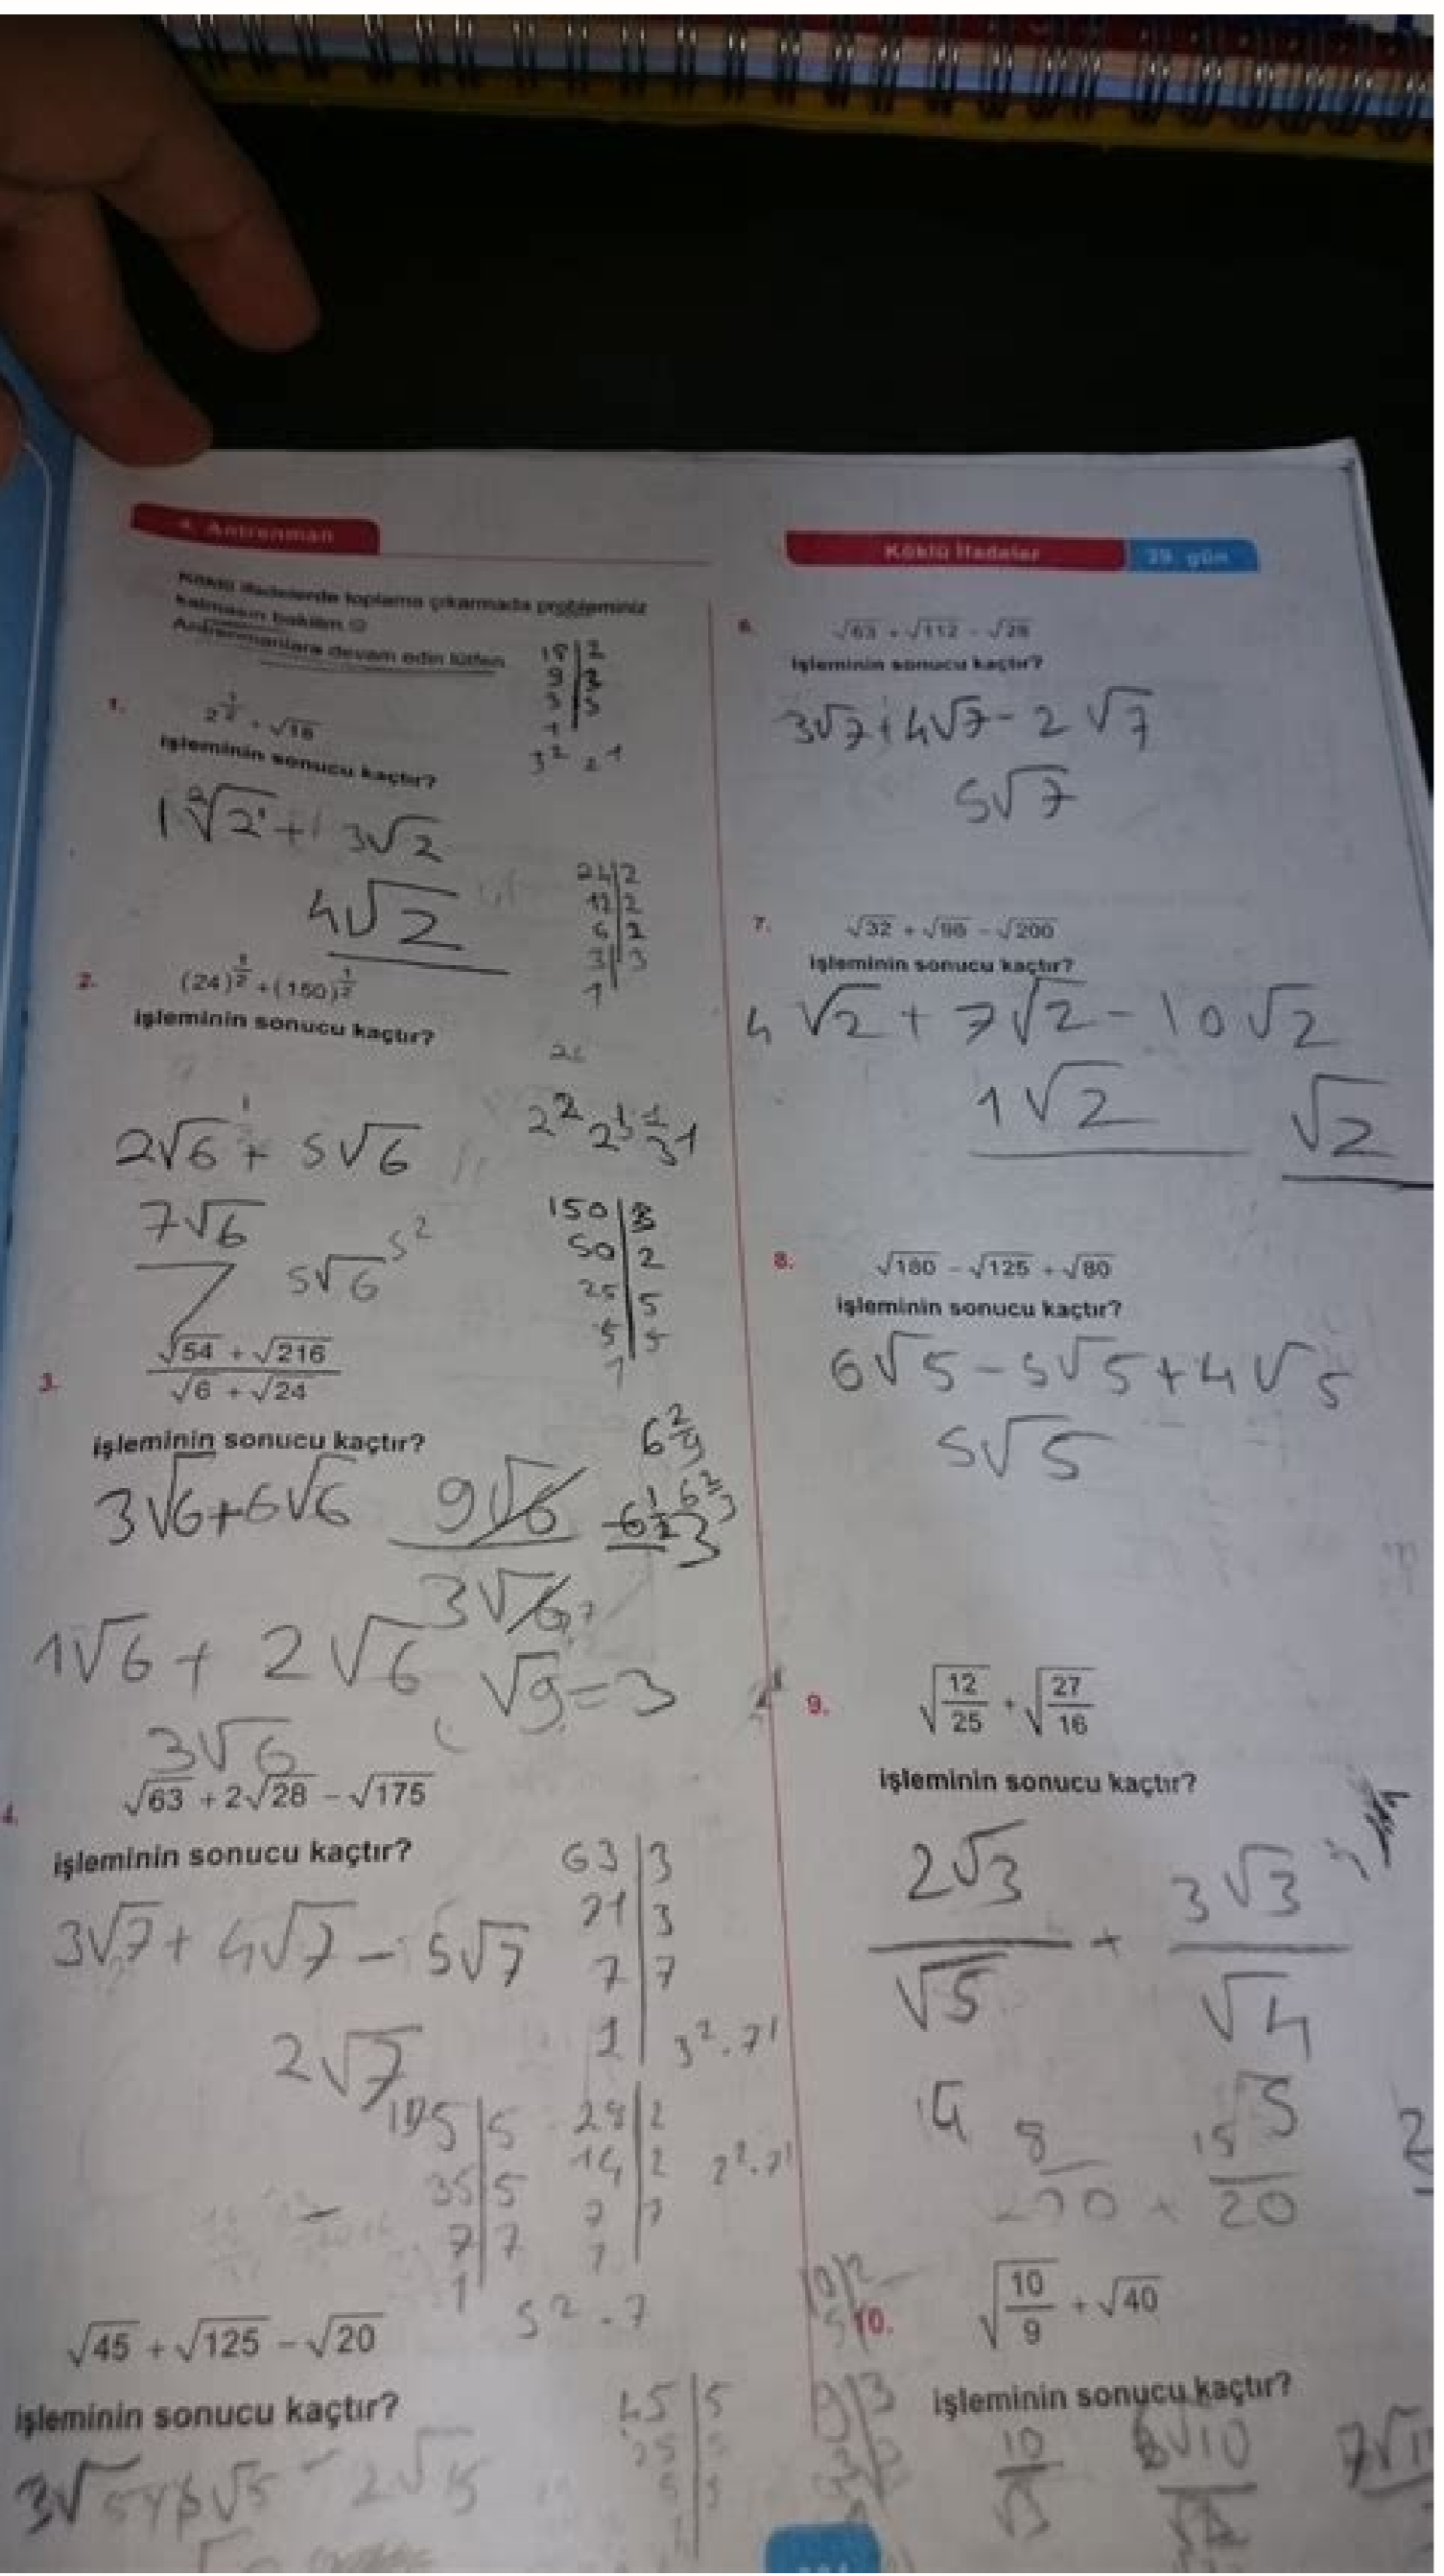 4. Antrenman
Köklü ifadelerde toplama çıkarmada probleminiz
kalmasın bakalım ☺
Antrenmanlara devam edin lütfen
18|2
9|3
3|3
1
3² 2¹
1. 2^(1/2) + √18
işleminin sonucu kaçtır?
1 ²√2¹ + 3√2
4√2
24|2
12|2
6|2
3|3
1
2. (24)^(1/2) + (150)^(1/2)
işleminin sonucu kaçtır?
2√6 + 5√6
7√6
5√6 5²
150|3
50|2
25|5
5|5
1
3. (√54 + √216) / (√6 + √24)
işleminin sonucu kaçtır?
3√6+6√6 9√6
3√6
1√6 + 2√6 √9=3
3√6
4. √63 + 2√28 − √175
işleminin sonucu kaçtır?
3√7 + 4√7 − 5√7
2√7
63|3
21|3
7|7
1
3².7¹
28|2
14|2
7|7
1
2².7¹
175|5
35|5
7|7
1
5².7
√45 + √125 − √20
işleminin sonucu kaçtır?
45|5
Köklü İfadeler 29. gün
6. √63 + √112 − √28
işleminin sonucu kaçtır?
3√7+4√7−2√7
5√7
7. √32 + √98 − √200
işleminin sonucu kaçtır?
4√2 + 7√2 − 10√2
1√2 √2
8. √180 − √125 + √80
işleminin sonucu kaçtır?
6√5 − 5√5 + 4√5
5√5
9. √(12/25) + √(27/16)
işleminin sonucu kaçtır?
2√3/√5 + 3√3/√4
10. √(10/9) + √40
işleminin sonucu kaçtır?